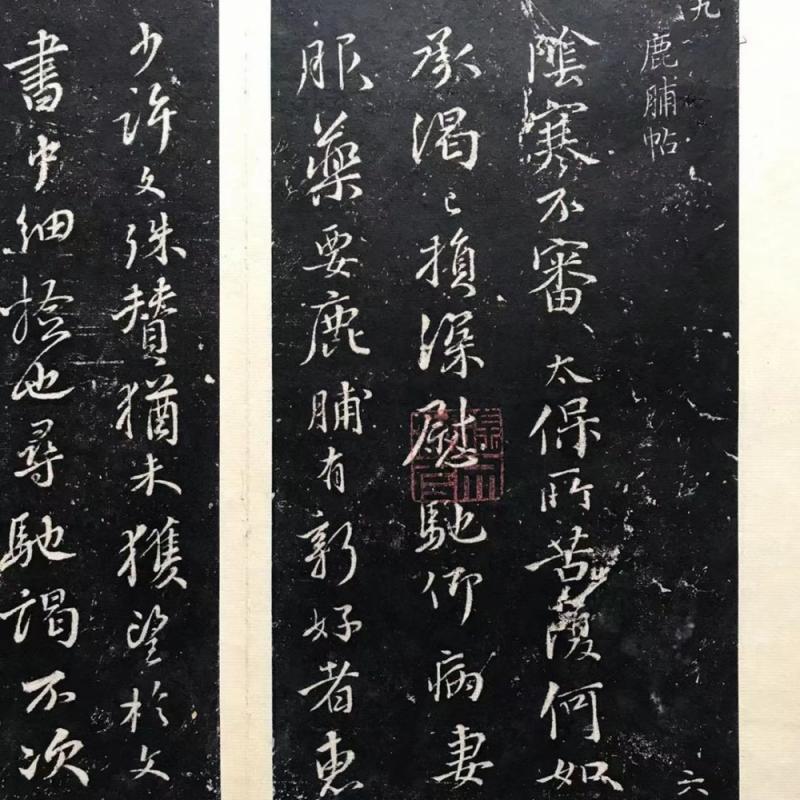 九
鹿脯帖
六
陰寒不審、太保所苦復何如
承渴已損深慰馳仰病妻
服藥要鹿脯有新好者惠
少許文殊賛猶未獲望於文
書中細撿也尋馳謁不次